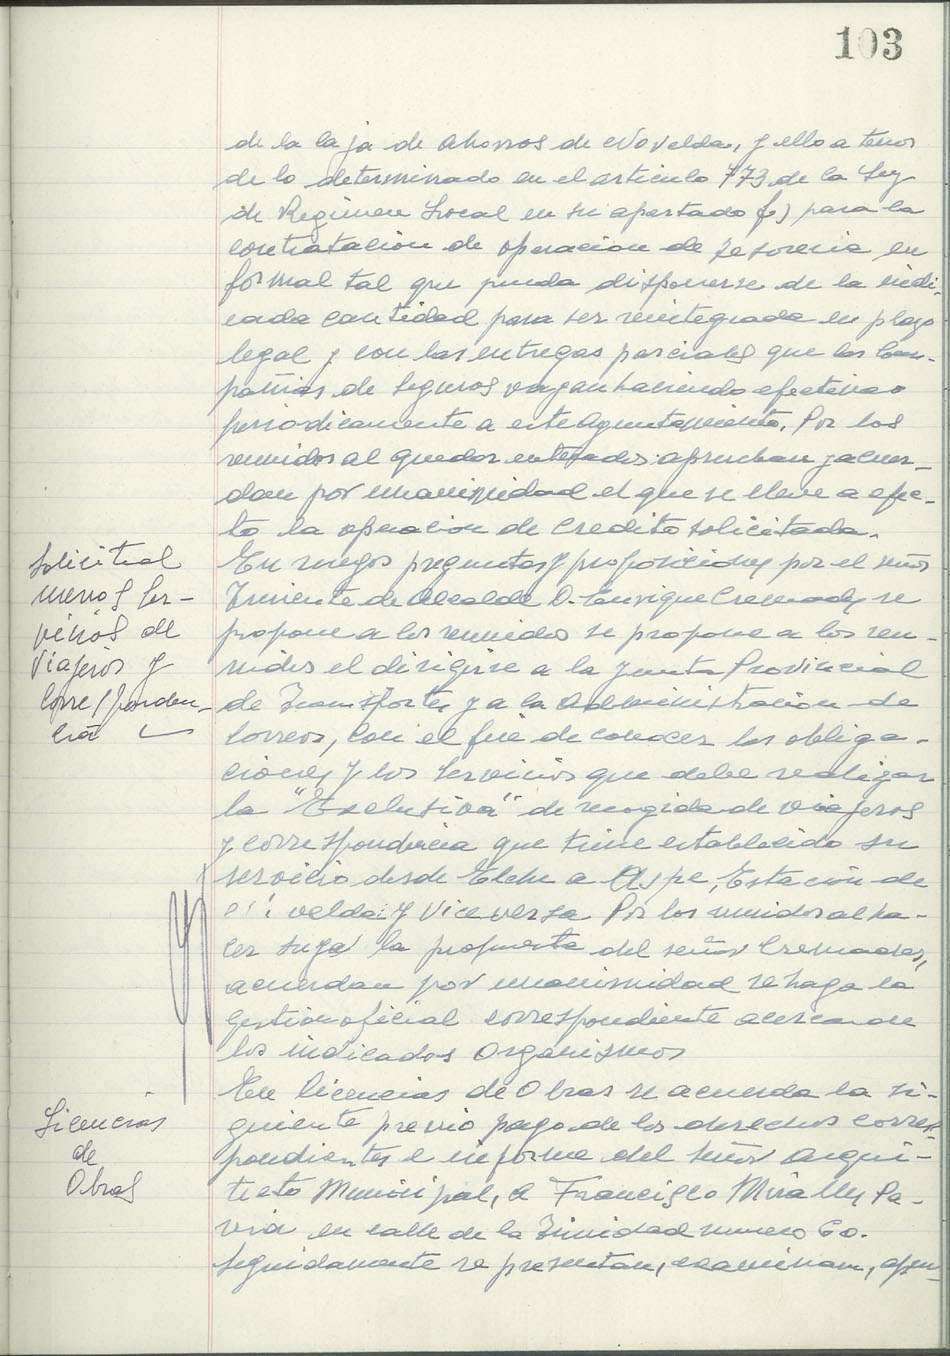 103
de la Caja de Ahorros de Novelda, y ello a tenor
de lo determinado en el articulo 773 de la Ley
de Regimen Local en su apartado f) para la
contratacion de operacion de Tesoreria en
formal tal que pueda disponerse de la indi-
cada cantidad para ser reintegrada en plazo
legal y con las entregas parciales que las Com-
pañias de Seguros vayan haciendo efectivas
periodicamente a este Ayuntamiento. Por los
reunidos al quedar enterados aprueban y acuer-
dan por unanimidad el que se lleve a efec-
to la operacion de credito solicitada.
Solicitud
nuevos Ser-
vicios de
Viajeros y
Correspônden-
cia
En ruegos preguntas y proposiciones por el señor
Teniente de Alcalde D. Enrique Cremades se
propone a los reunidos se propone a los reu-
nidos el dirigirse a la Junta Provincial
de Transportes y a la Administracion de
Correos, con el fin de conocer las obliga-
ciones y los servicios que debe realizar
la "Exclusiva" de recogida de viajeros
y correspondencia que tiene establecido su
servicio desde Elche a Aspe, Estación de
velda y Viceversa Por los reunidos al ha-
cer suya la propuesta del señor Cremades,
acuerdan por unanimidad se haga la
gestion oficial correspondiente acerca de
los indicados Organismos
Licencias
de
Obras
En licencias de Obras se acuerda la si-
guiente previo pago de los derechos corres-
pondientes e informe del Señor Arqui-
tecto Municipal, a Francisco Miralles Pa-
via en calle de la Trinidad numero 60.
Seguidamente se presentan, examinan, apru-